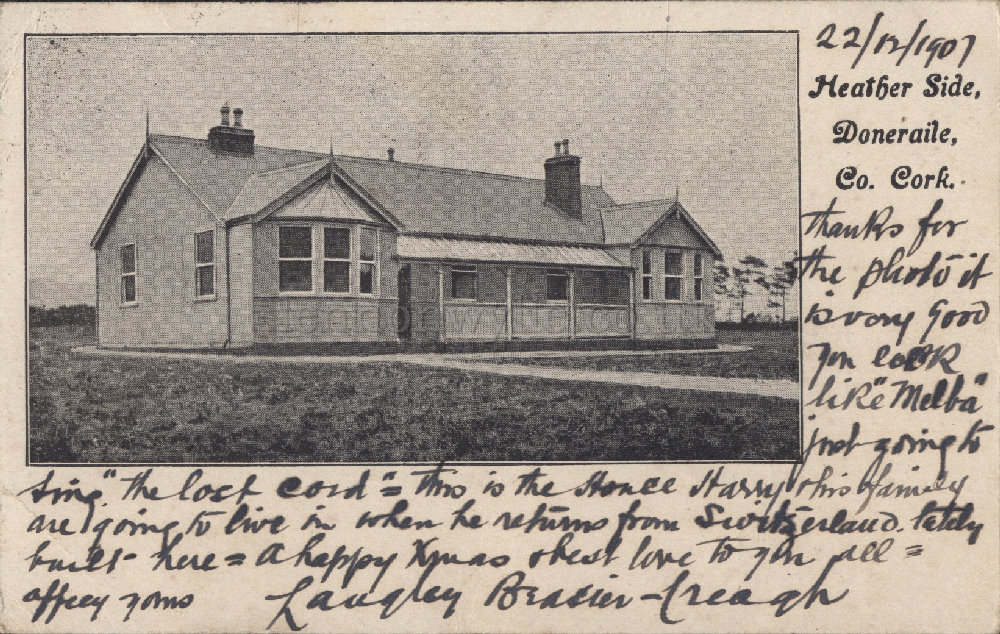 22/12/1907
Heather Side,
Doneraile,
Co. Cork.
thanks for
the photo it
is very good
you look
like "Melba"
just going to
sing "the lost cord" = this is the House Harry & his family
are going to live in when he returns from Switzerland. lately
built here = A happy Xmas & best love to you all =
affecy yours Langley Brasier-Creagh